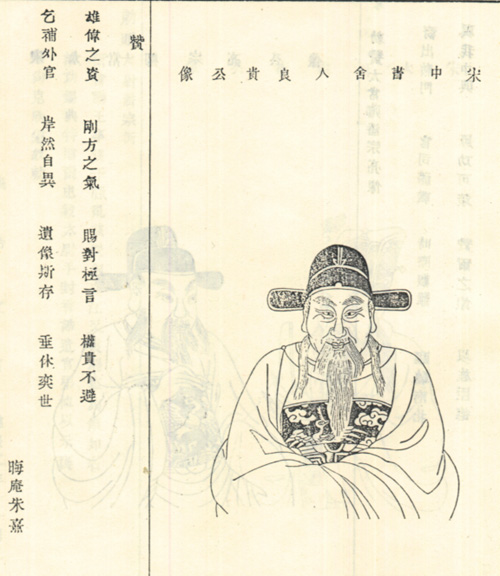 宋中書舍人良貴公像
贊
雄偉之資 剛方之氣 賜對極言 權貴不避
乞補外官 岸然自異 遺像斯存 垂休奕世
晦庵朱嘉